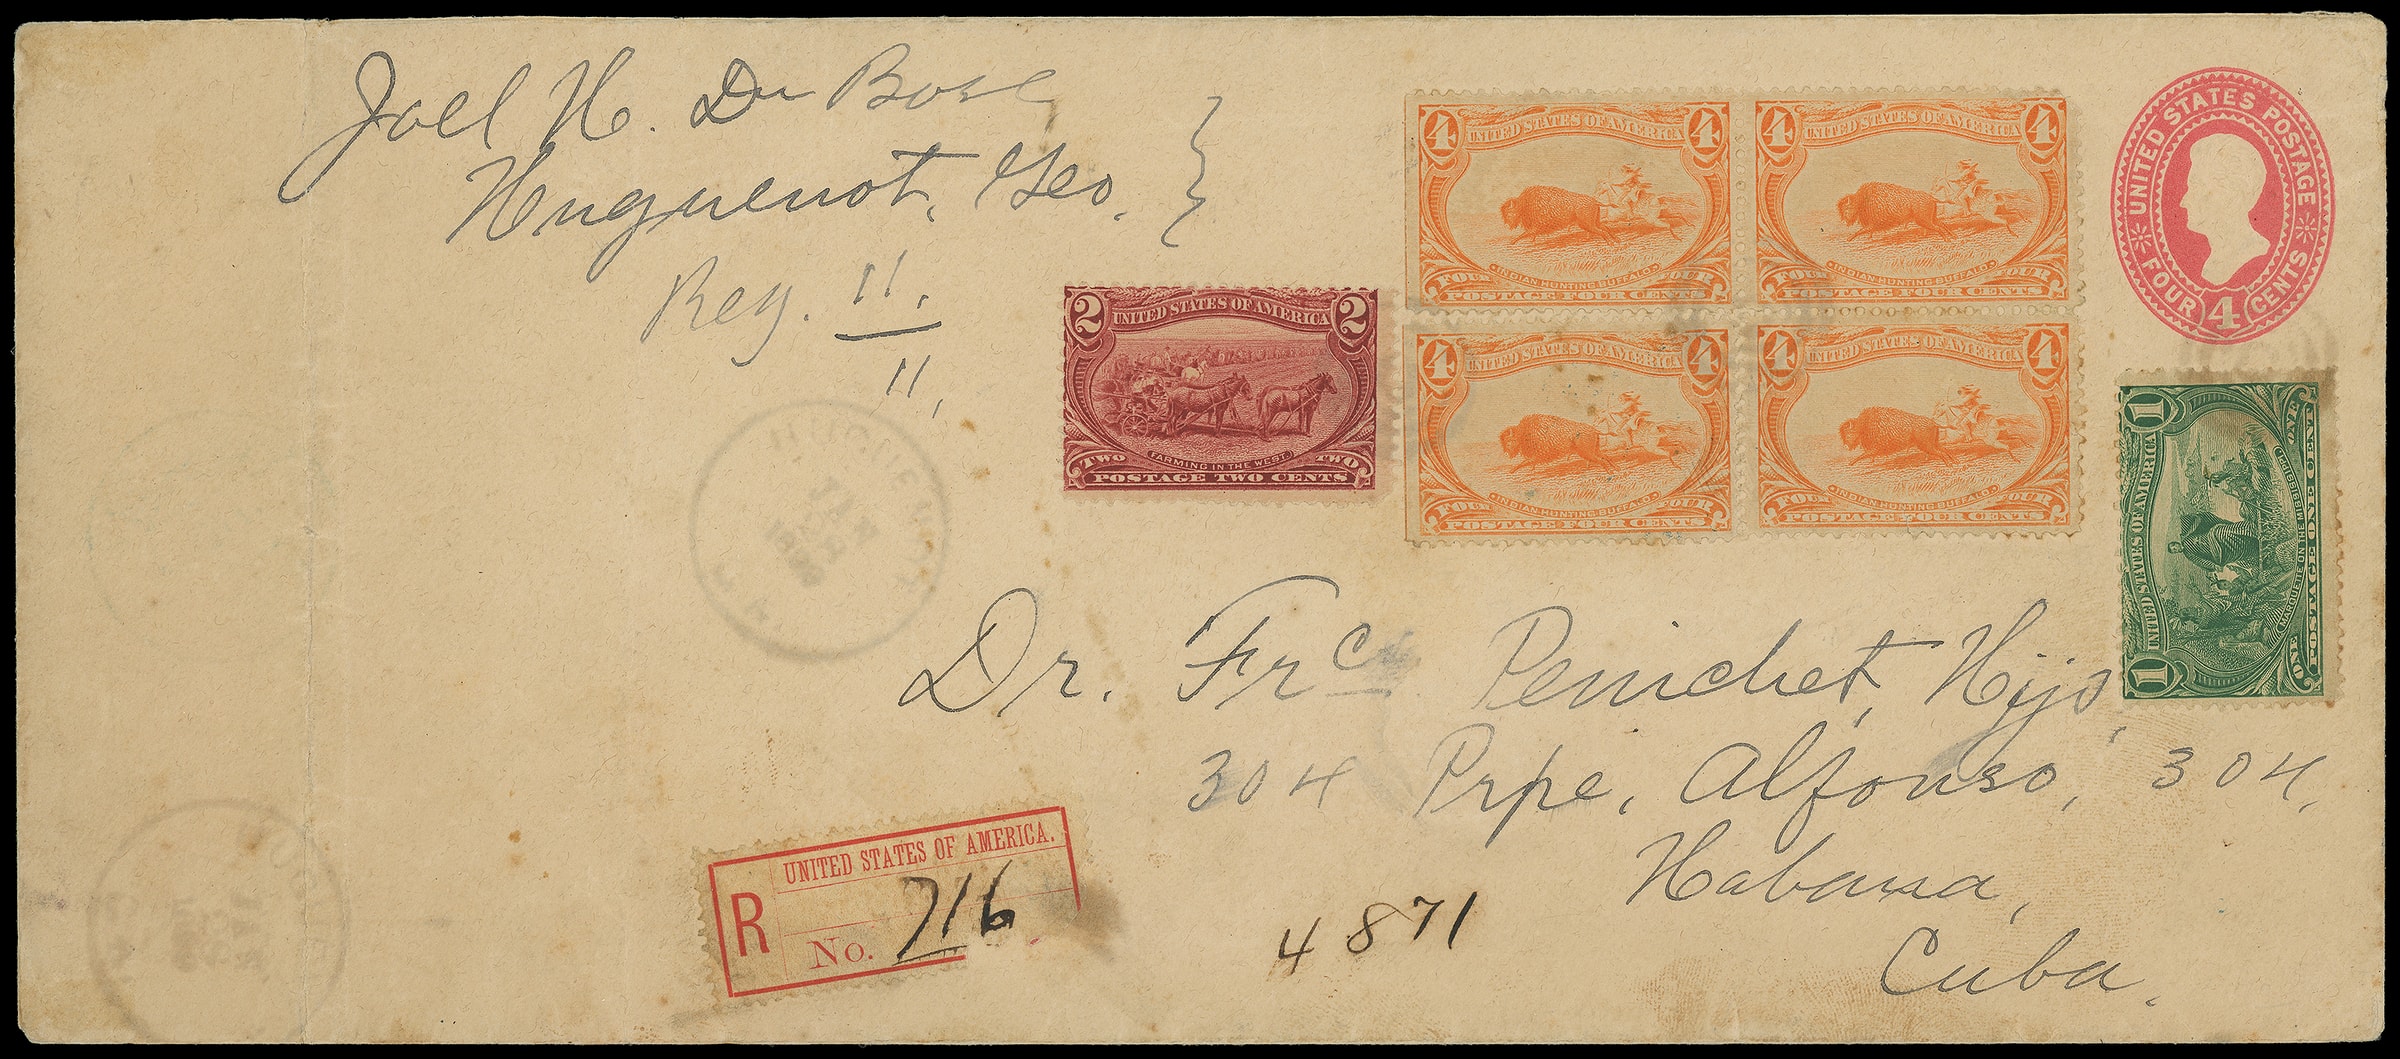 Joel H. Du Bose
Huguenot, Geo.
Reg. 11.
11.
2 UNITED STATES OF AMERICA 2
TWO FARMING IN THE WEST. TWO
POSTAGE TWO CENTS
4 UNITED STATES OF AMERICA 4
FOUR INDIAN HUNTING BUFFALO FOUR
POSTAGE FOUR CENTS
4 UNITED STATES OF AMERICA 4
FOUR INDIAN HUNTING BUFFALO FOUR
POSTAGE FOUR CENTS
4 UNITED STATES OF AMERICA 4
FOUR INDIAN HUNTING BUFFALO FOUR
POSTAGE FOUR CENTS
4 UNITED STATES OF AMERICA 4
FOUR INDIAN HUNTING BUFFALO FOUR
POSTAGE FOUR CENTS
UNITED STATES POSTAGE
FOUR 4 CENTS
1 UNITED STATES OF AMERICA 1
ONE MARQUETTE ON THE MISSISSIPPI ONE
POSTAGE ONE CENT
Dr. Frc Penichet, Hijo,
304 Prpe, Alfonso, 304,
Habana,
Cuba.
UNITED STATES OF AMERICA.
R No. 716
4871